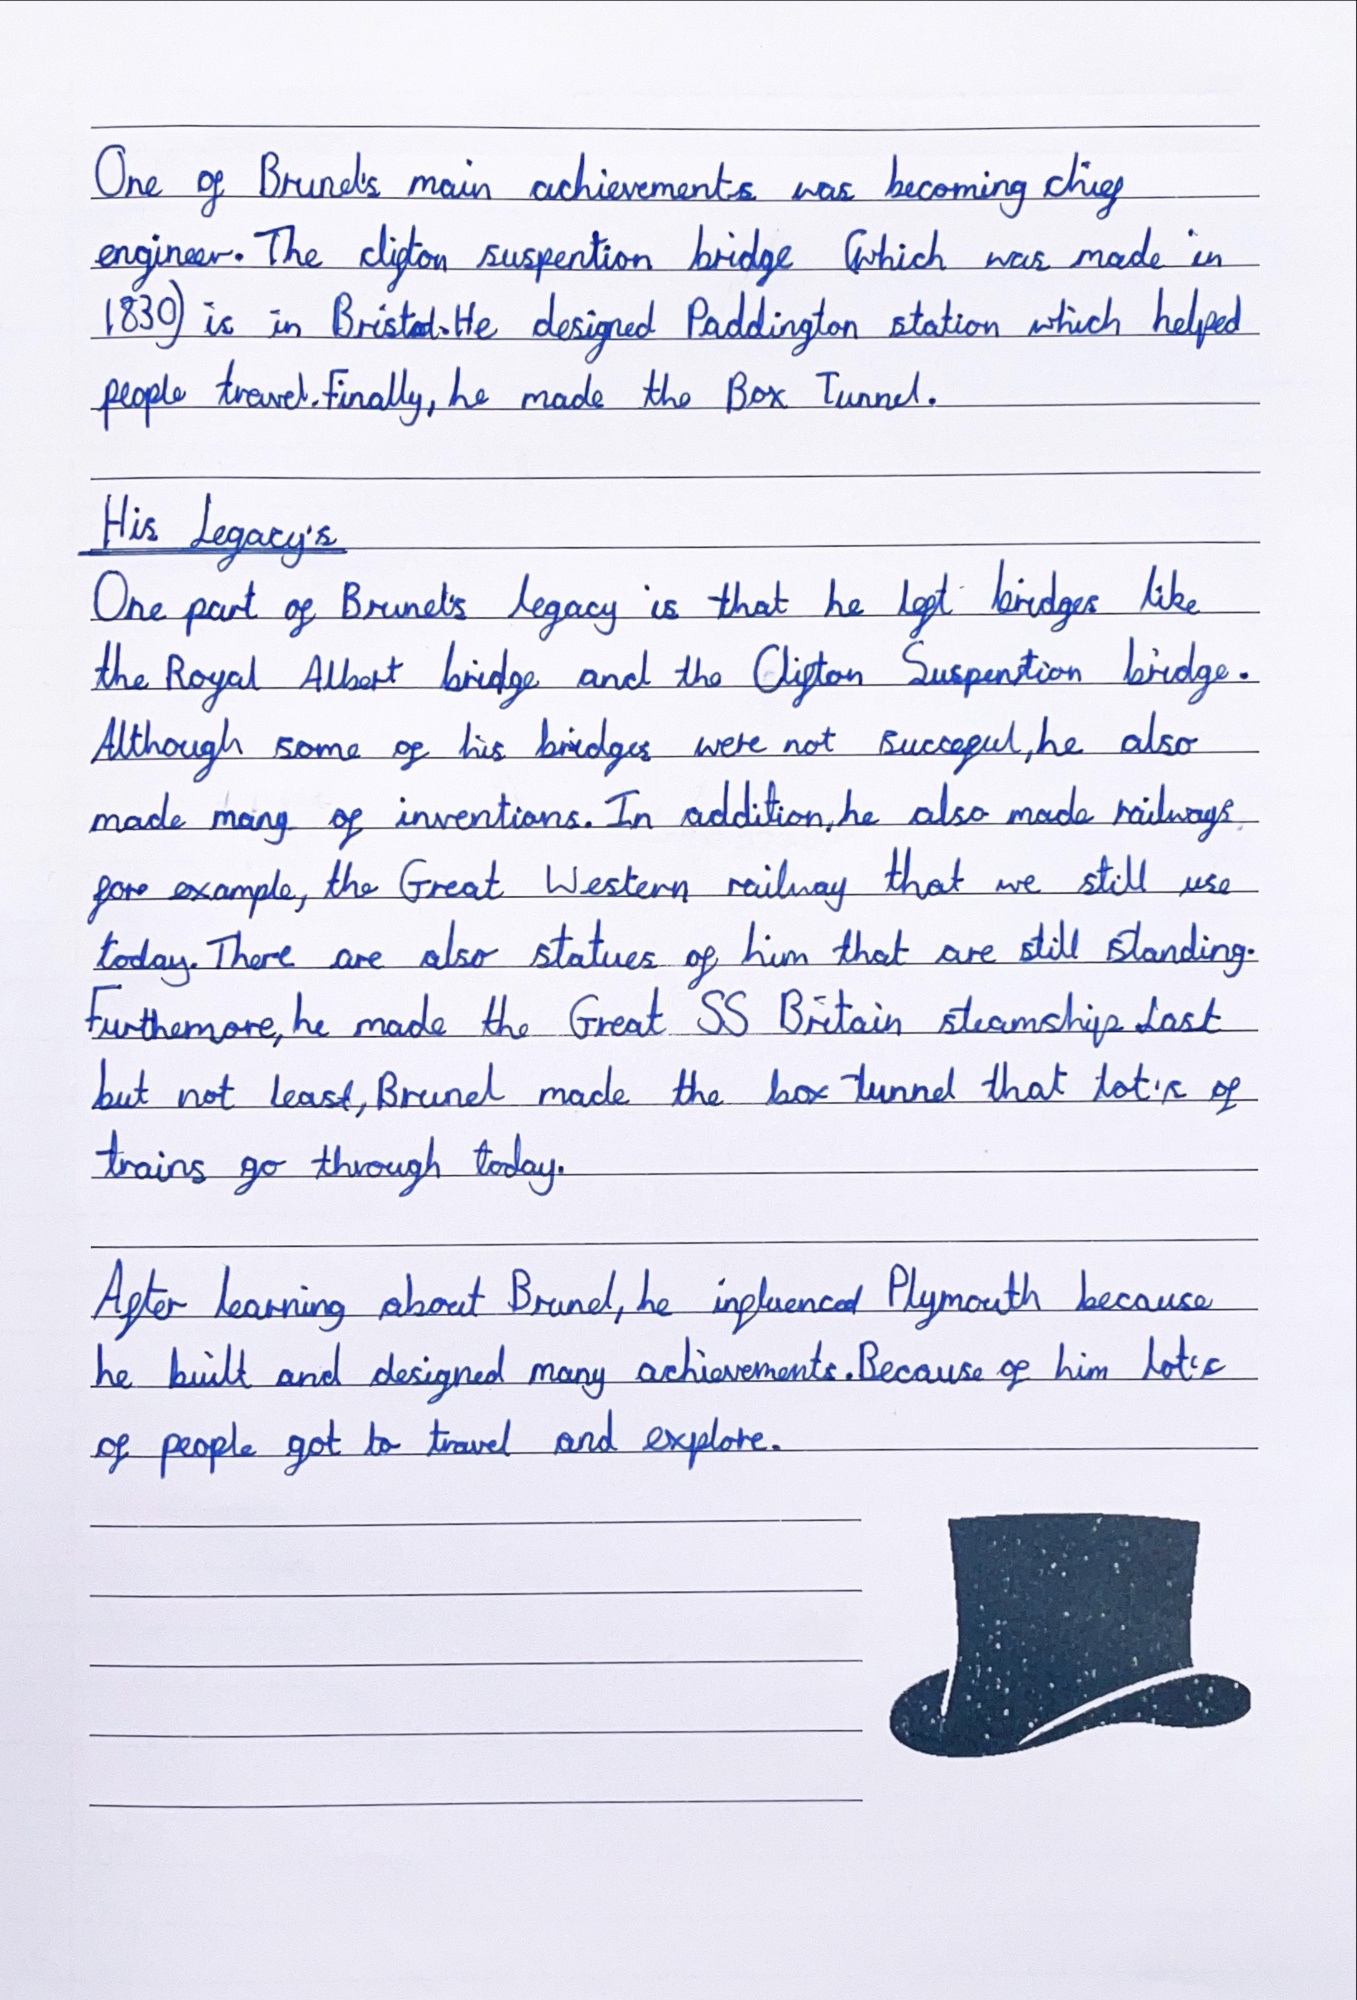 One of Brunel's main achievements was becoming chief
engineer. The clifton suspention bridge (which was made in
1830) is in Bristol. He designed Paddington station which helped
people travel. Finally, he made the Box Tunnel.
His Legacy's
One part of Brunel's legacy is that he left bridges like
the Royal Albert bridge and the Clifton Suspention bridge.
Although some of his bridges were not succeful, he also
made many of inventions. In addition, he also made railways
fore example, the Great Western railway that we still use
today. There are also statues of him that are still standing.
Furthemore, he made the Great SS Britain steamship. Last
but not least, Brunel made the box tunnel that lot's of
trains go through today.
After learning about Brunel, he influenced Plymouth because
he built and designed many achievements. Because of him lot's
of people got to travel and explore.